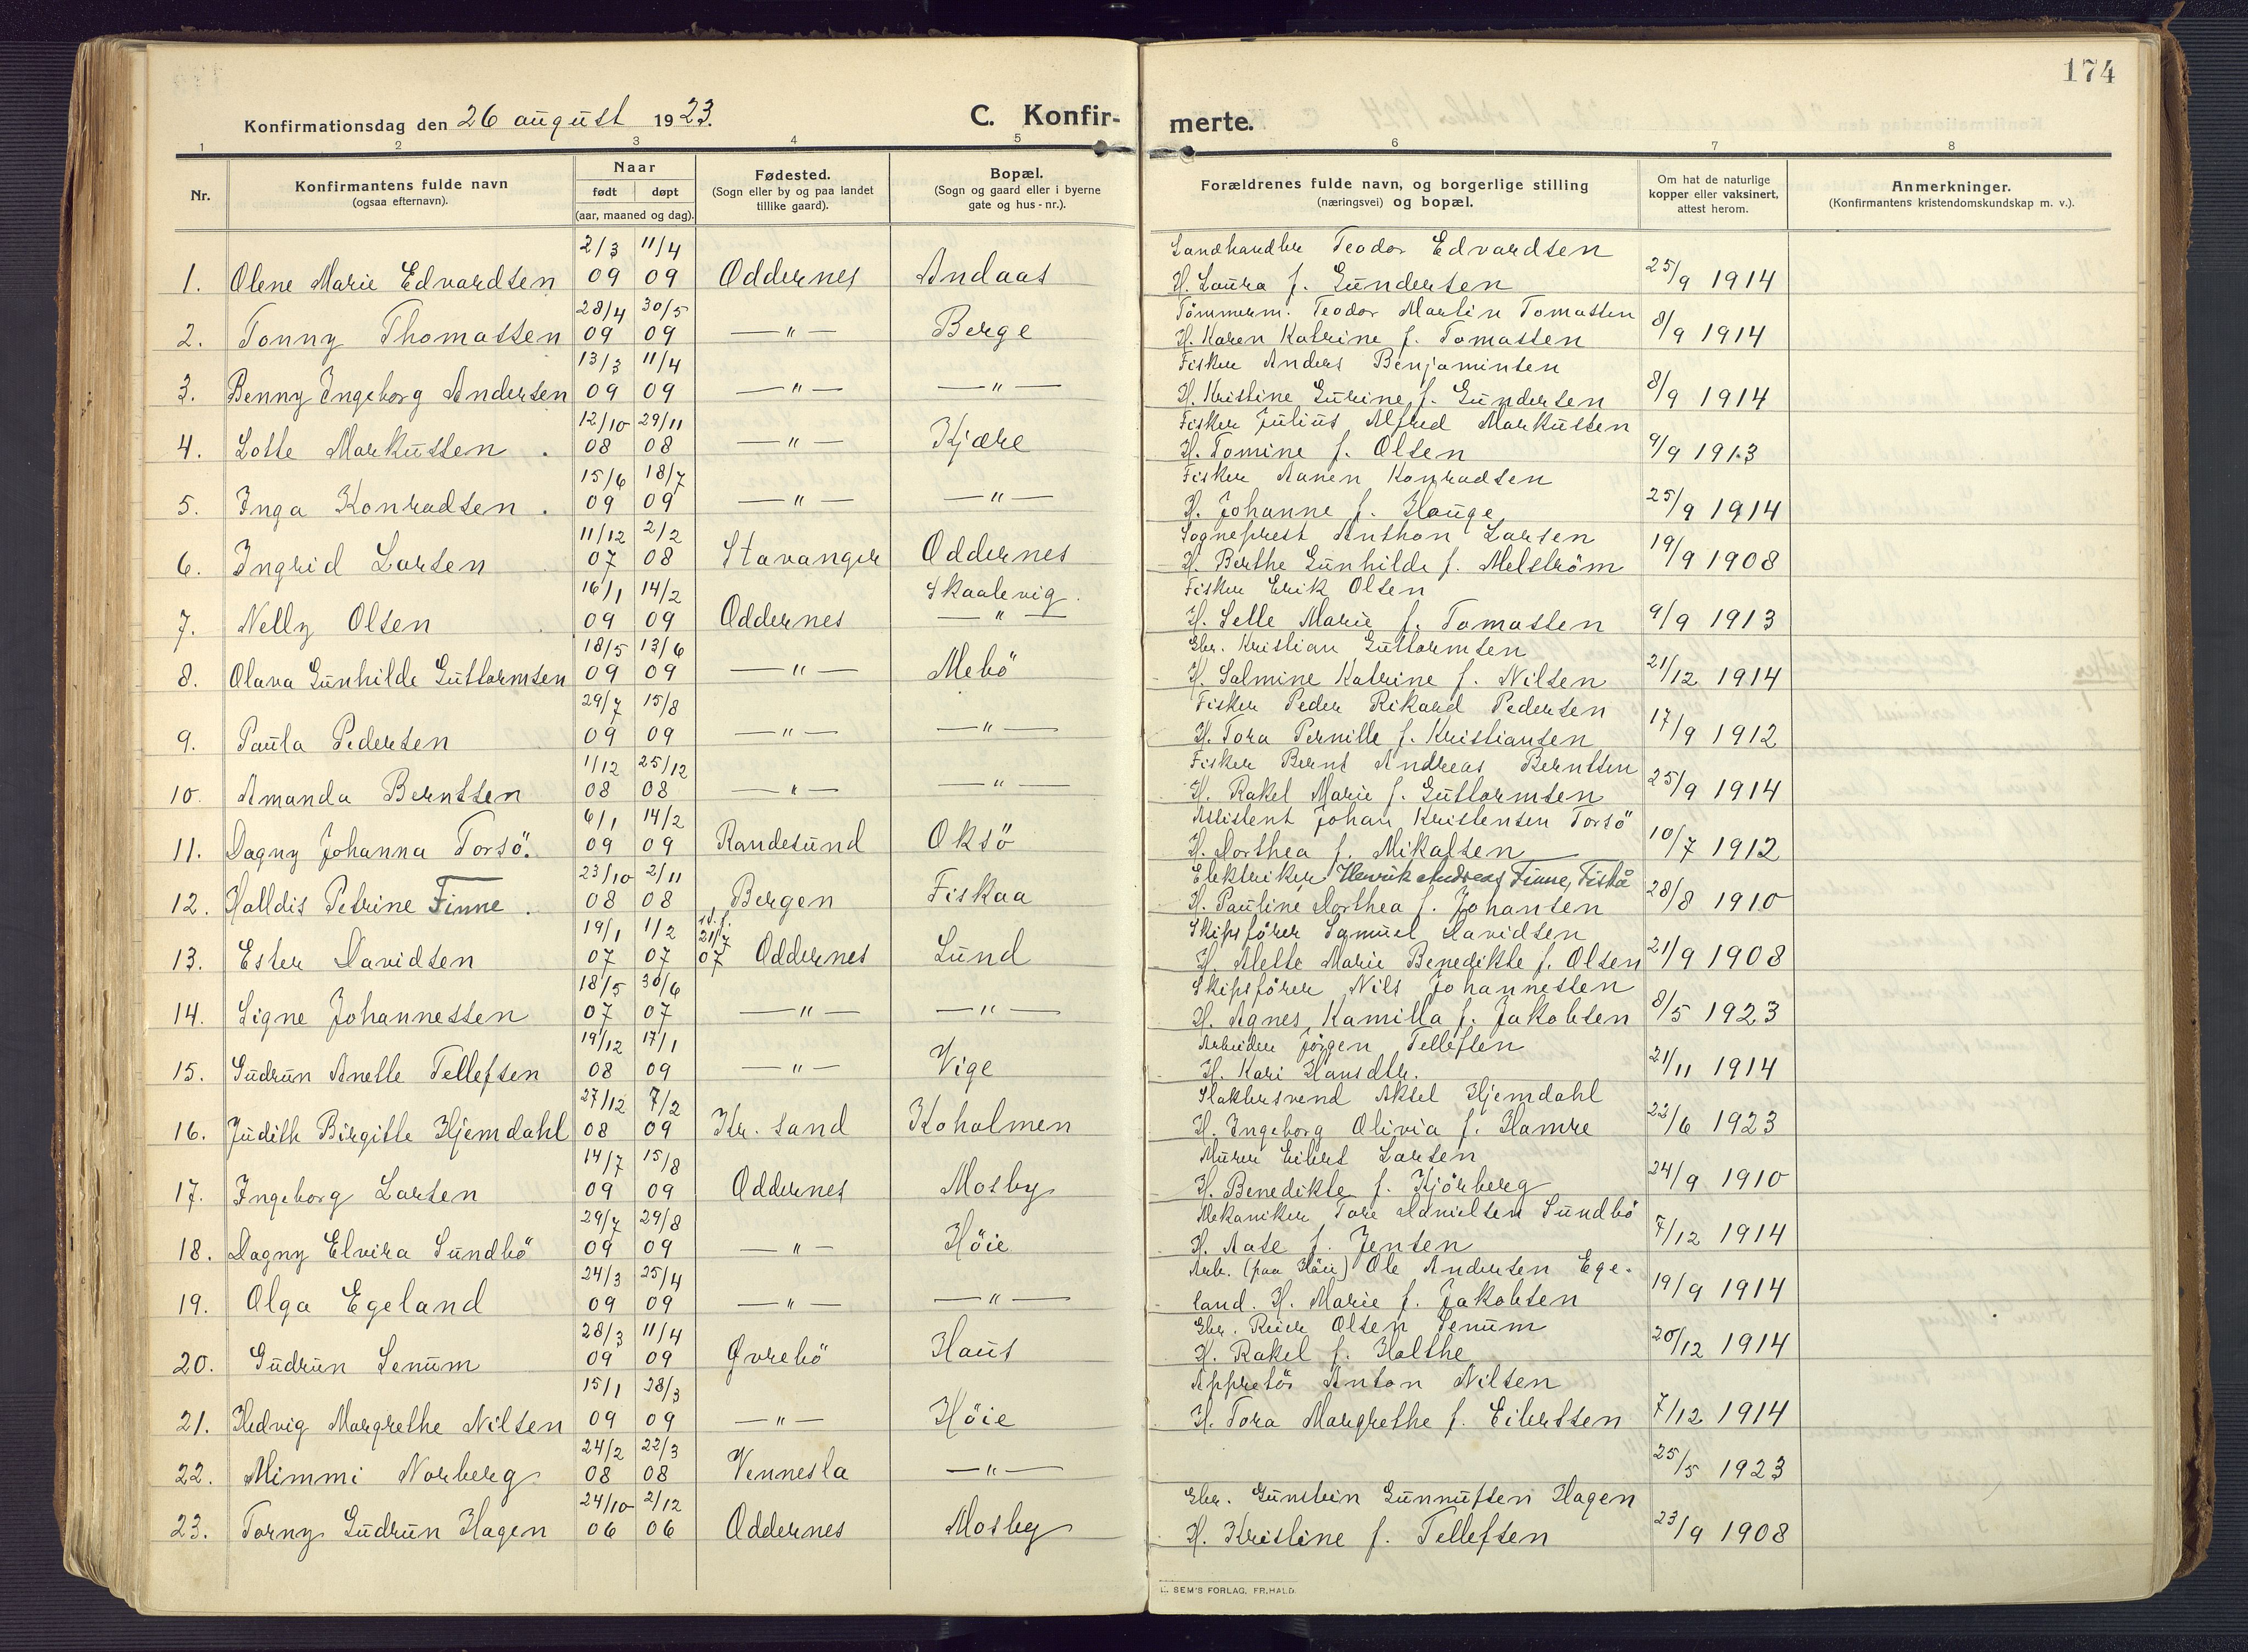 174
Konfirmationsdag den 26 august 1923.
C. Konfir-
merte.
1 2 3 4 5 6 7 8
Nr.
Konfirmantens fulde navn
(ogsaa efternavn).
Naar
født døpt
(aar, maaned og dag).
Fødested.
(Sogn eller by og paa landet
tillike gaard).
Bopæl.
(Sogn og gaard eller i byerne
gate og hus-nr.).
Forældrenes fulde navn, og borgerlige stilling
(næringsvei) og bopæl.
Om hat de naturlige
kopper eller vaksinert,
attest herom.
Anmerkninger.
(Konfirmantens kristendomskundskap m. v.).
2/3 11/4 Landhandler Teodor Edvardsen
1. Olene Marie Edvardsen 09 09 Oddernes Andaas H. Laura f. Gundersen 25/9 1914
28/4 30/5 Tömmerm. Teodor Martin Tomassen
2. Tonny Thomassen 09 09 —"— Berge H. Karen Katrine f. Tomassen 8/9 1914
13/3 11/4 Fisker Anders Benjaminsen
3. Benny Ingeborg Andersen 09 09 —"— —"— H. Kristine Gurine f. Gundersen 8/9 1914
12/10 29/11 Fisker Julius Alfred Markussen
4. Lotte Markussen. 08 08 —"— Kjære H. Tomine f. Olsen 9/9 1913
15/6 18/7 Fisker Aanen Konradsen
5. Inga Konradsen. 09 09 —"— —"— H. Johanne f. Hauge 25/9 1914
11/12 2/2 Sogneprest Anthon Larsen
6. Ingrid Larsen 07 08 Stavanger Oddernes H. Berthe Gunhilde f. Melström 19/9 1908
16/1 14/2 Skaalevig. Fisker Erik Olsen
7. Nelly Olsen 09 09 Oddernes —"— H. Selle Marie f. Tomassen 9/9 1913
18/5 13/6 Gbr. Kristian Guttormsen
8. Olava Gunhilde Guttormsen 09 09 —"— Mebö H. Salmine Katrine f. Nilsen 21/12 1914
29/7 15/8 Fisker Peder Rikard Pedersen
9. Paula Pedersen 09 09 —"— —"— H. Tora Pernille f. Kristiansen 17/9 1912
1/12 25/12 Fisker Bernt Andreas Berntsen
10. Amanda Berntsen 08 08 —"— —"— H. Rakel Marie f. Guttormsen 25/9 1914
6/1 14/2 Assistent Johan Kristensen Torsö
11. Dagny Johanna Torsö. 09 09 Randesund Oksö H. Dorthea f. Mikalsen 10/7 1912
23/10 2/11 Elektriker Henrik Andreas Finne, Fiskå
12. Halldis Petrine Finne. 08 08 Bergen Fiskaa H. Pauline Dorthea f. Johansen 28/8 1910
19/1 1/2 21/7 Skipsförer Samuel Davidsen
13. Ester Davidsen 07 07 07 Oddernes Lund H. Alette Marie Benedikte f. Olsen 21/9 1908
18/5 30/6 Skipsförer Nils Johannessen
14. Signe Johannessen 07 07 —"— —"— H. Agnes Kamilla f. Jakobsen 8/5 1923
19/12 17/1 Arbeider Jörgen Tellefsen
15. Gudrun Anette Tellefsen 08 09 —"— Vige H. Kari Hansdtr. 21/11 1914
27/12 7/2 Slaktersvend Aksel Hjemdahl
16. Judith Birgitte Hjemdahl 08 09 Kr. sand Koholmen H. Ingeborg Olivia f. Hamre 22/6 1923
14/7 15/8 Murer Eilert Larsen
17. Ingeborg Larsen 09 09 Oddernes Mosby H. Benedikte f. Kjörberg 24/9 1910
29/7 29/8 Mekaniker Tore Danielsen Sundbö
18. Dagny Elvira Sundbö 09 09 —"— Höie H. Aase f. Jensen 7/12 1914
24/3 25/4 Arb. (paa Höie) Ole Andersen Ege-
19. Olga Egeland 09 09 —"— —"— land. H. Marie f. Jakobsen 19/9 1914
28/3 11/4 Gbr. Reier Olsen Senum
20. Gudrun Senum 09 09 Øvrebö Haus H. Rakel f. Holthe 20/12 1914
15/1 28/3 Appretör Anton Nilsen
21. Hedvig Margrethe Nilsen 09 09 —"— Höie H. Tora Margrethe f. Eilertsen 7/12 1914
24/2 22/3
22. Mimmi Norberg 08 08 Vennesla —"— 25/5 1923
24/10 2/12 Gbr. Gunstein Gunnufsen Hagen
23. Torny Gudrun Hagen 06 06 Oddernes Mosby H. Kristine f. Tellefsen 23/9 1908
SEM'S FORLAG, FR.HALD.